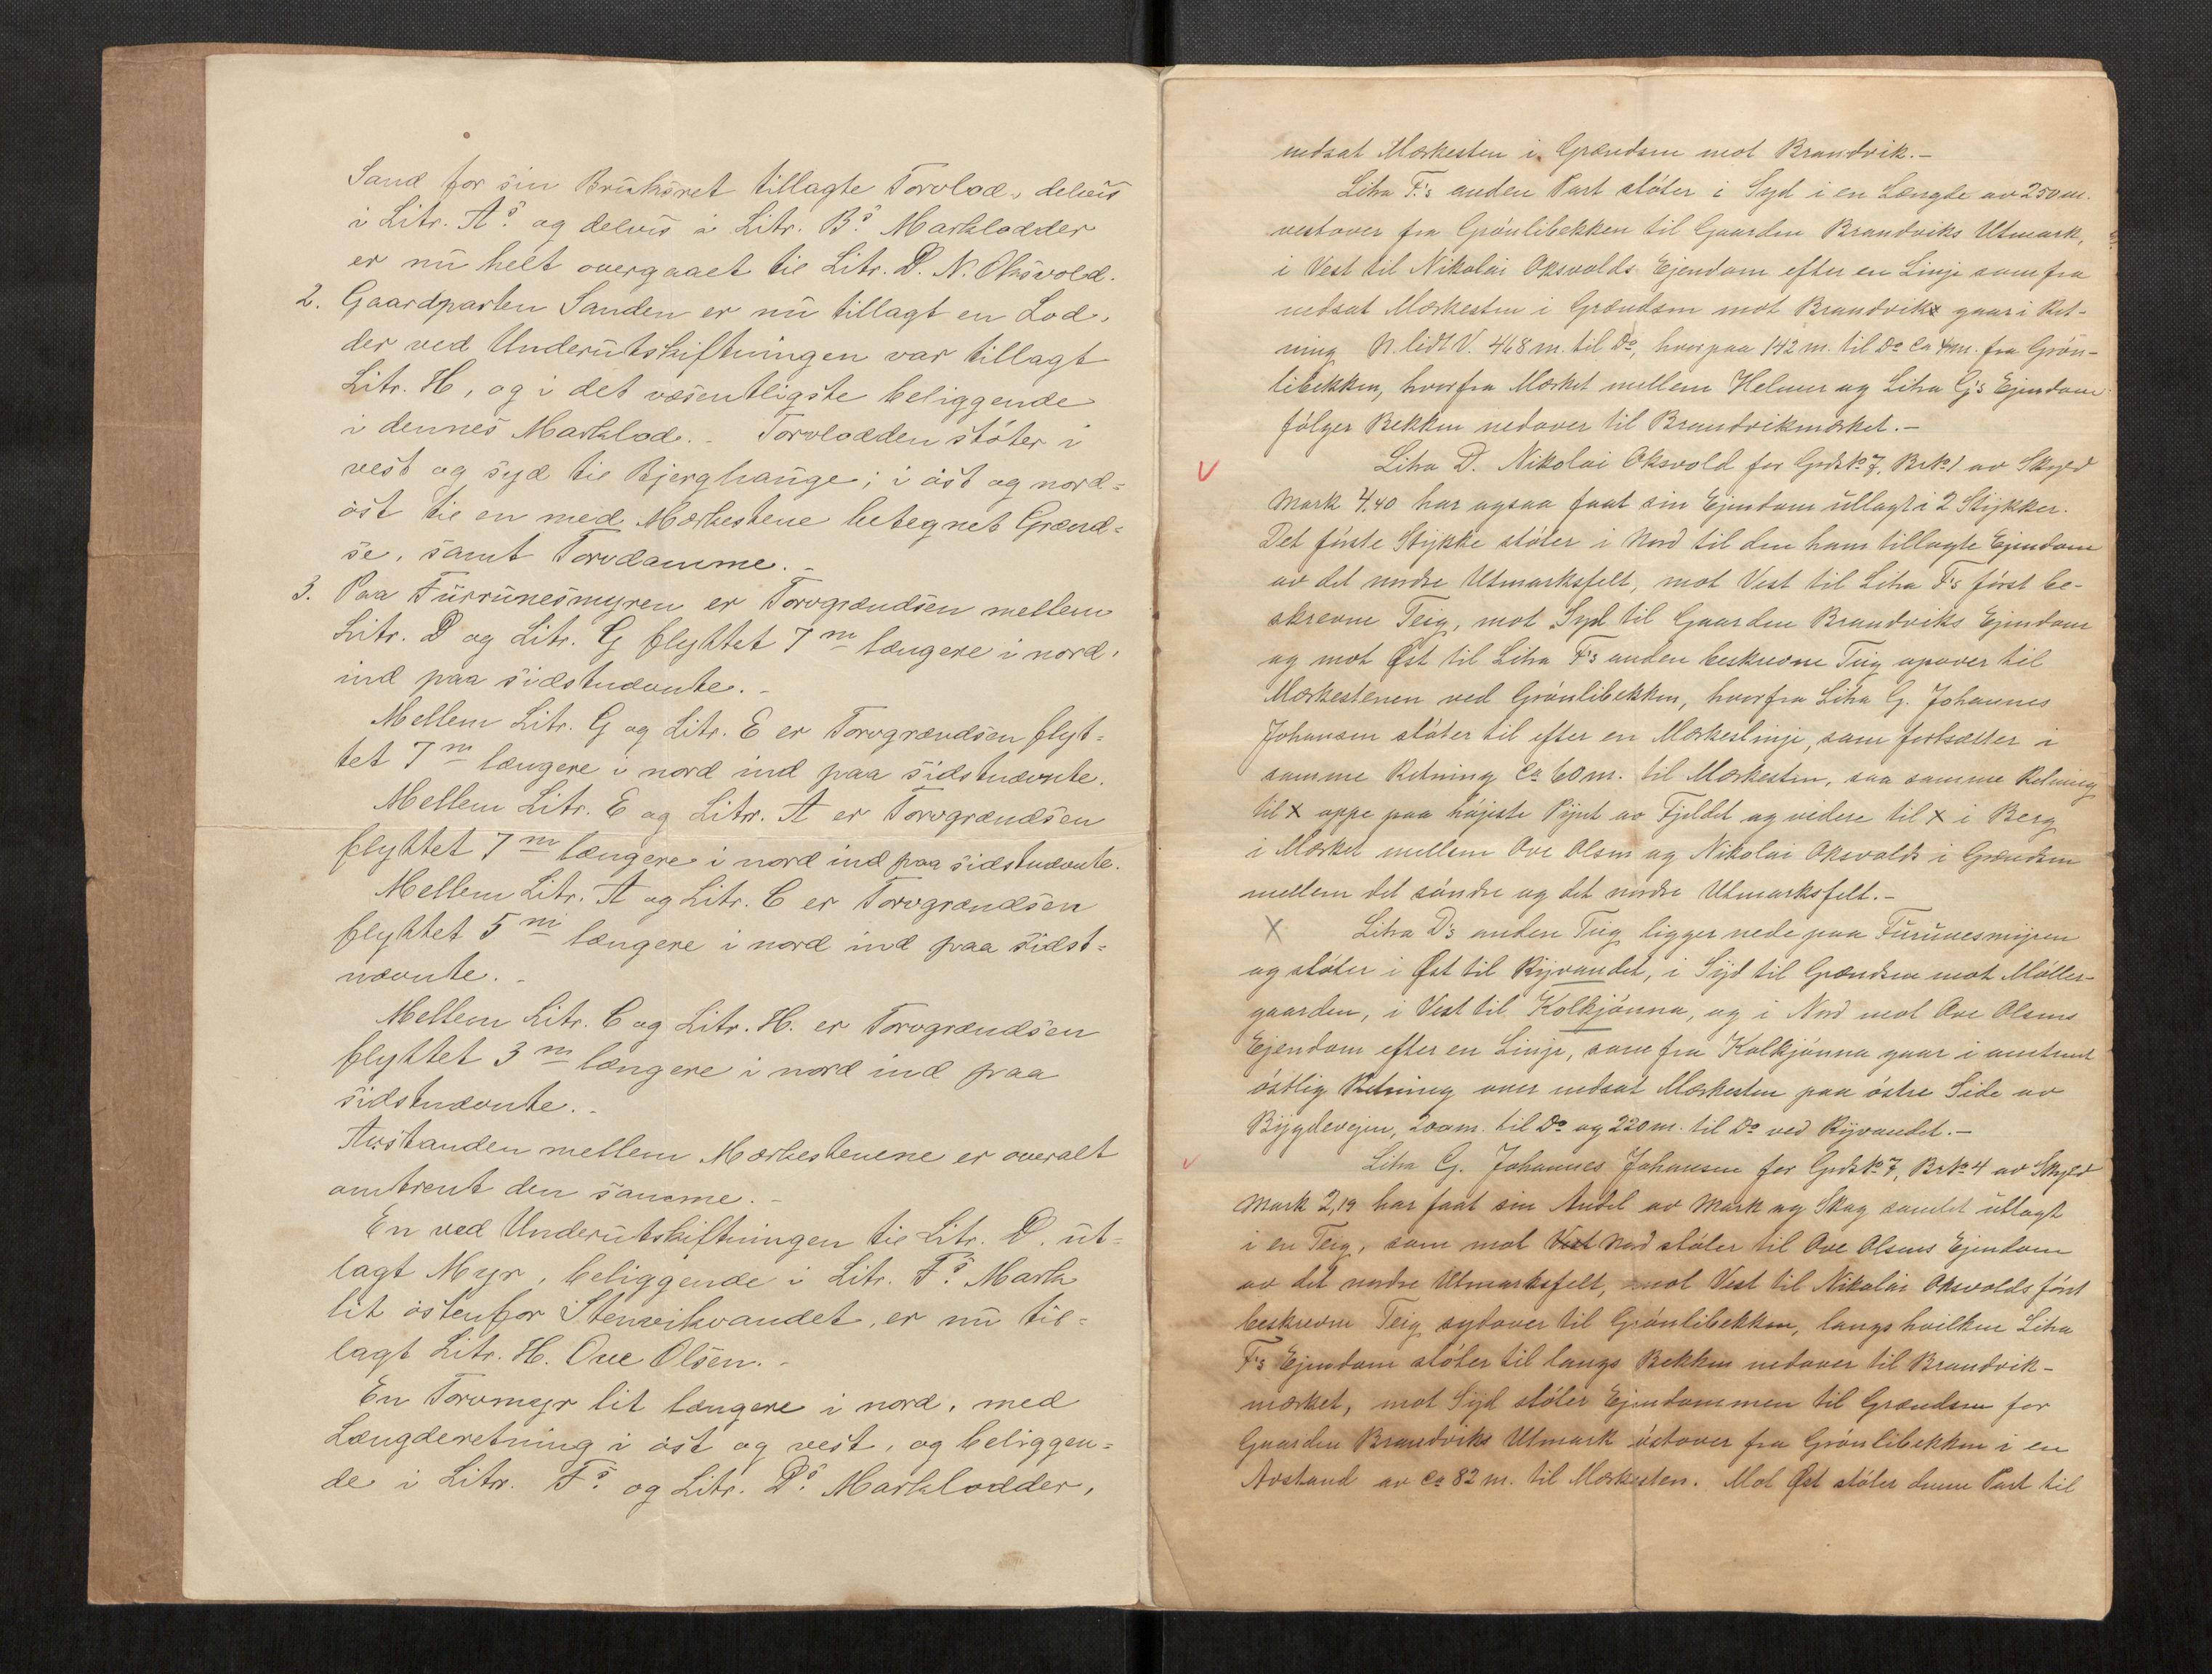 Sand for sin Bruksret tillagte Torvlod, delvis
i Litr. A's og delvis i Litr. B's Marklodder
er nu helt overgaaet til Litr. D. N. Oksvold.
2. Gaardparten Sanden er nu tillagt en Lod,
der ved Underutskiftningen var tillagt
Litr. H, og i det væsentligste beliggende
i dennes Marklod. - Torvlodden støter i
vest og syd til Bjerghauge; i øst og nord=
øst til en med Merkestene betegnet Grænd=
se, samt Torvdamme. -
3. Paa Furrunesmyren er Torvgrændsen mellem
Litr. D og Litr. G flyttet 7 m længere i nord,
ind paa sidstnævnte. -
Mellem Litr. G og Litr. E er Torvgrændsen flyt=
tet 7 m længere i nord ind paa sidstnævnte.
Mellem Litr. E og Litr. A er Torvgrændsen
flyttet 7 m længere i nord ind paa sidstnævnte.
Mellem Litr. A og Litr. C er Torvgrændsen
flyttet 5 m længere i nord ind paa sidst=
nævnte. -
Mellem Litr. C og Litr. H. er Torvgrændsen
flyttet 3 m længere i nord ind paa
sidstnævnte. -
Avstanden mellem Mærkestenene er overalt
omtrent den samme. -
En ved Underutskiftningen til Litr. D. ut=
lagt Myr, beliggende i Litr. F's Mark
lit østenfor Stenvikvandet, er nu til=
lagt Litr. H. Ove Olsen. -
En Torvmyr lit længere i nord, med
Længderetning i øst og vest, og beliggen=
de i Litr. F's og Litr. D's Marklodder,
nedsat Merkesten i Grændsen mot Brandvik. -
Litra F's anden Part støter i Syd i en Længde av 250 m.
vestover fra Grønlibekken til Gaarden Brandviks Utmark,
i Vest til Nikolai Oksvolds Ejendom efter en Linje som fra
nedsat Merkesten i Grændsen mot Brandvik gaar i Ret-
ning N. lidt V. 468 m. til Do, hvorpaa 142 m. til Do ca 4 m. fra Grøn-
libekken, hvorfra Merket mellem Helmer og Litra G's Ejendom
følger Bekken nedover til Brandvikmerket. -
Litra D. Nikolai Oksvold for Grds No 7, Br No 1 av Skyld
Mark 4,40 har ogsaa faat sin Ejendom utlagt i 2 Stykker.
Det første Stykke støter i Nord til den ham tillagte Ejendom
av det nordre Utmarksfelt, mot Vest til Litra F's først be-
skrevne Teig, mot Syd til Gaarden Brandviks Ejendom
og mot Øst til Litra F's anden beskrevne Teig opover til
Merkestenen ved Grønlibekken, hvorfra Litra G. Johannes
Johansen støter til efter en Merkeslinje, som fortsætter i
samme Retning ca 60 m. til Merkesten, saa samme Retning
til X oppe paa højeste Pynt av Fjeldet og videre til X i Berg
i Merket mellem Ove Olsen og Nikolai Oksvolds i Grændsen
mellem det søndre og det nordre Utmarksfelt. -
X Litra D's anden Teig ligger nede paa Furunesmyren
og støter i Øst til Ryvandet, i Syd til Grændsen mot Møller-
gaarden, i Vest til Kolkjønna, og i Nord mot Ove Olsens
Ejendom efter en Linje, som fra Kolkjønna gaar i omtrent
østlig Retning over nedsat Merkesten paa østre Side av
Bygdevejen, 200 m. til Do og 220 m. til Do ved Ryvandet. -
Litra G. Johannes Johansen for Grds No 7, Br No 4 av Skyld
Mark 2,19 har faat sin Andel av Mark og Skog samlet utlagt
i en Teig, som mot Vest Nord støter til Ove Olsens Ejendom
av det nordre Utmarksfelt, mot Vest til Nikolai Oksvolds først
beskrevne Teig sydover til Grønlibekken, langs hvilken Litra
F's Ejendom støter til langs Bekken nedover til Brandvik-
merket, mot Syd støter Ejendommen til Grændsen for
Gaarden Brandviks Utmark østover fra Grønlibekken i en
Avstand av ca 82 m. til Merkesten. Mot Øst støter denne Part til